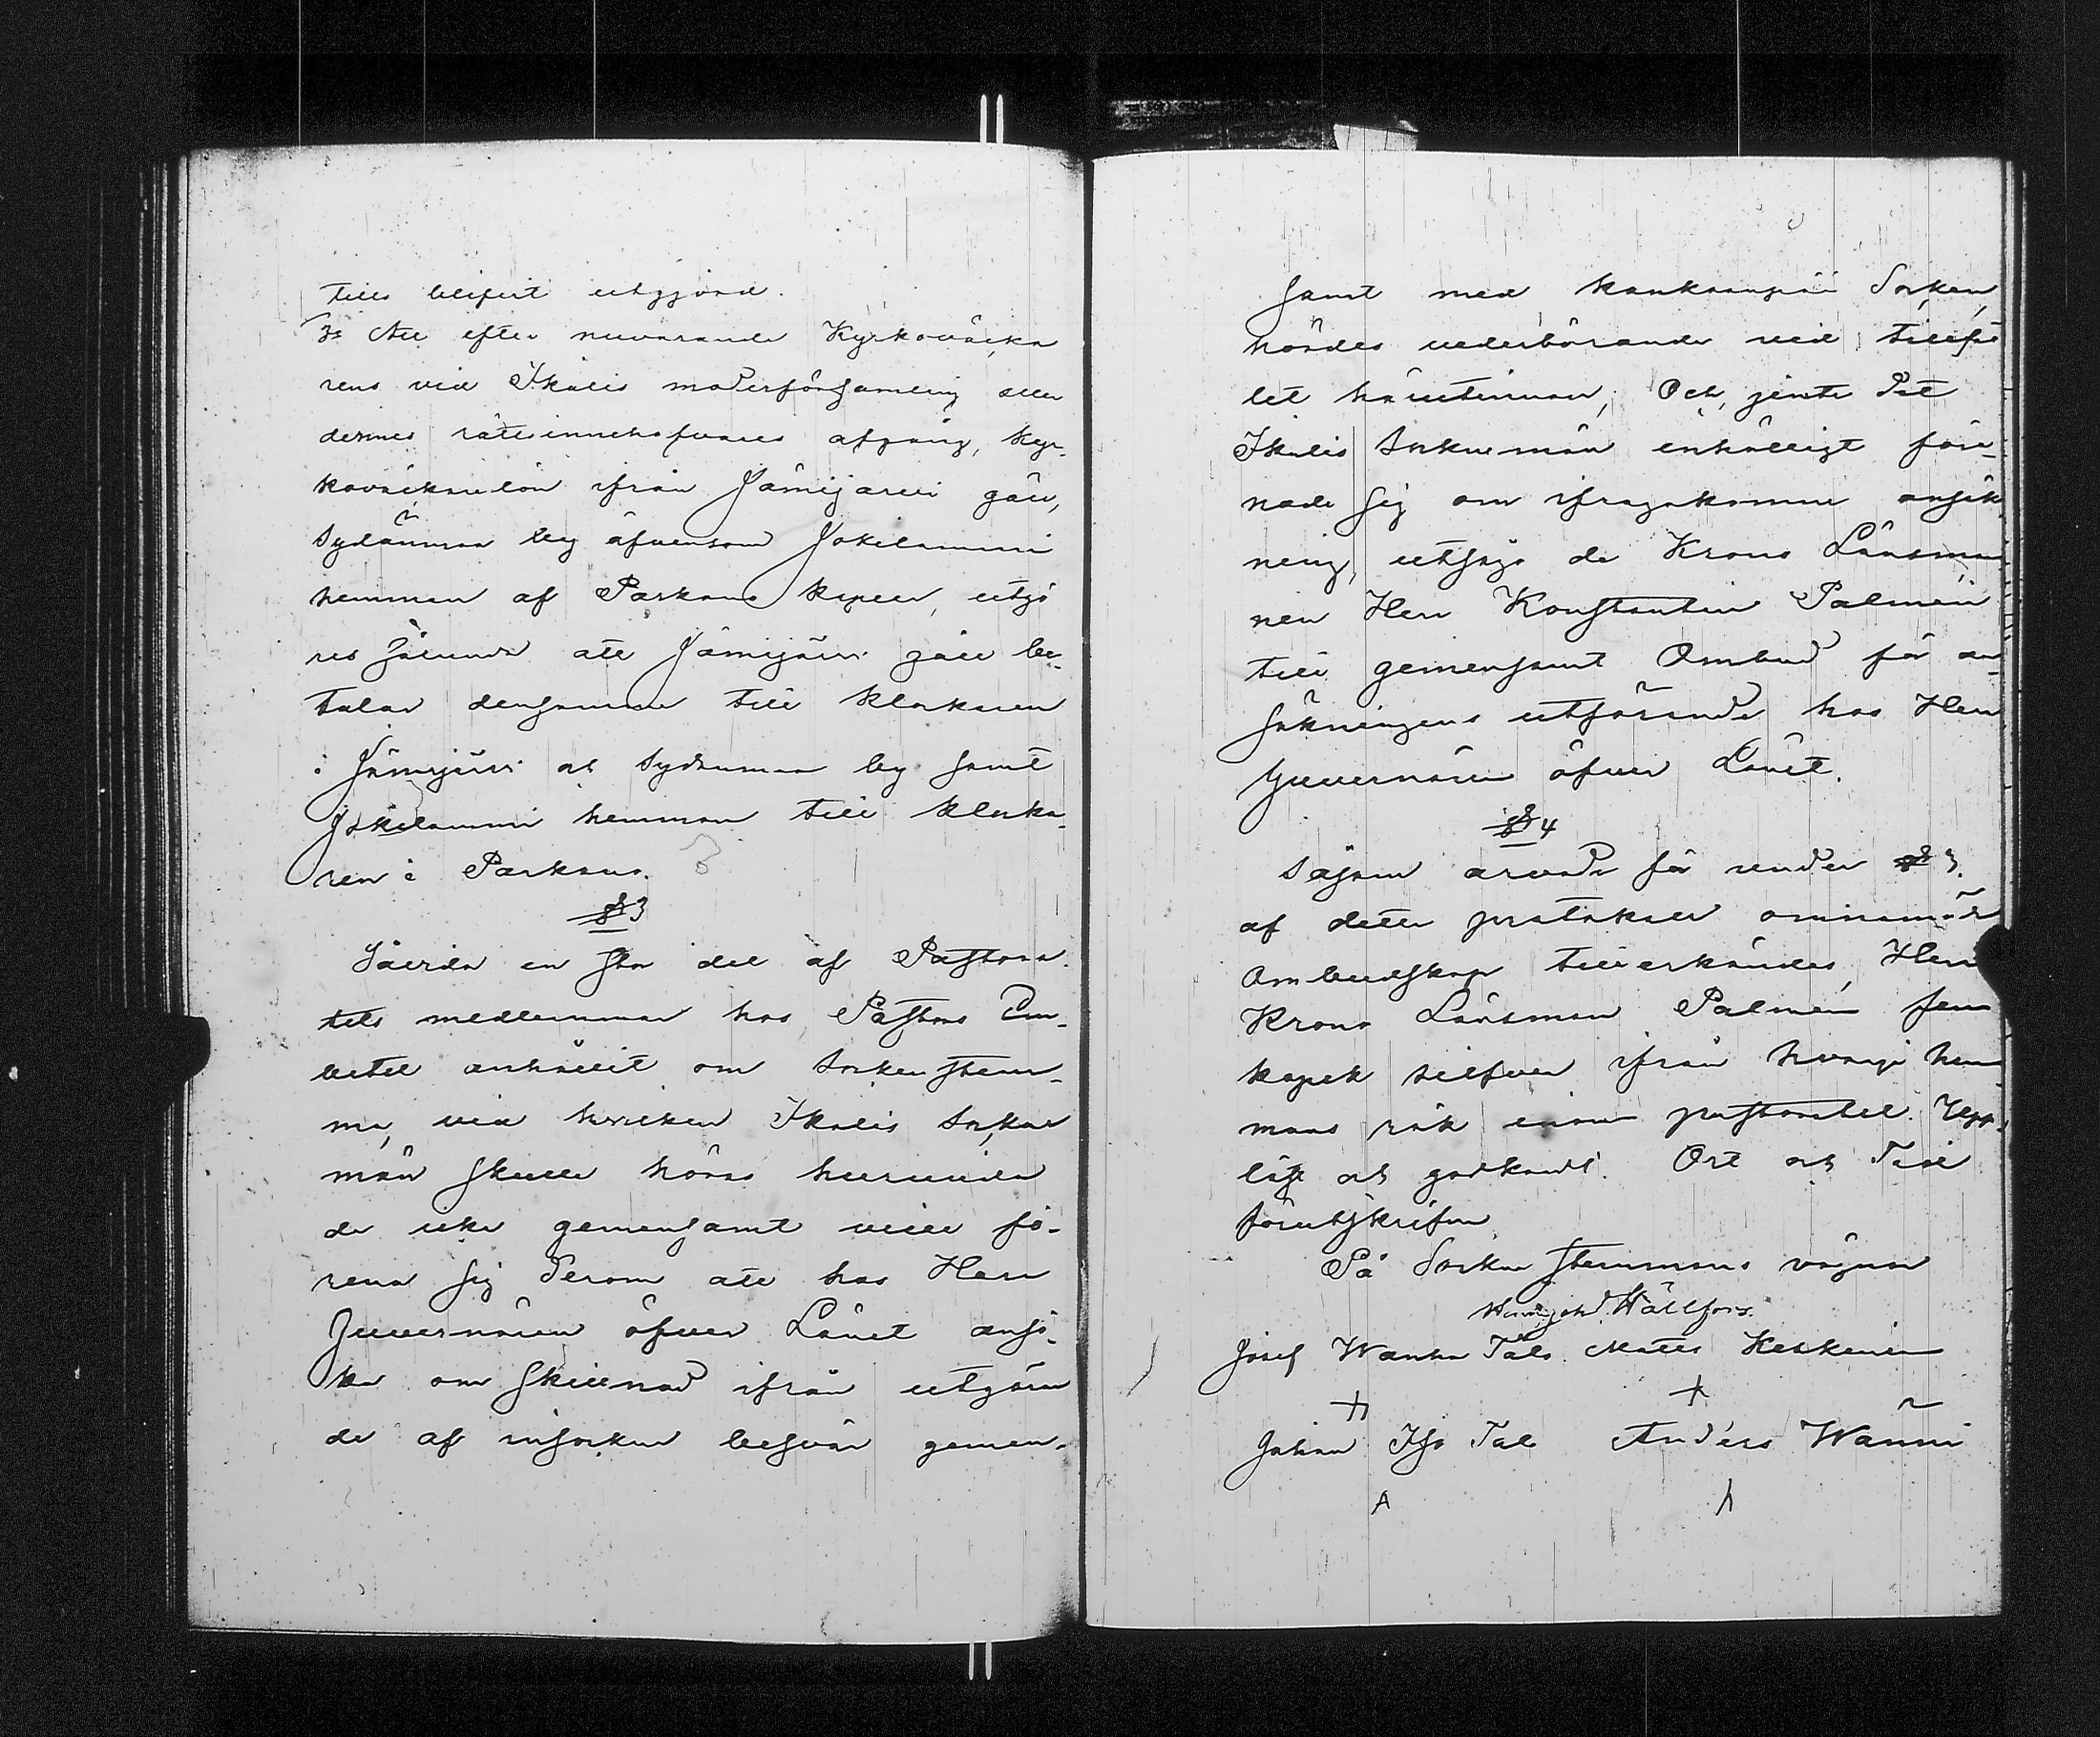 tills blifvit utgjord.
3o Att efter nuvarande Kyrkoväcka
rens vid Ikalis moderförsamling eller
dennes rättsinnehafvares afgång, kyr-
koväckarelön ifrån Jämijärvi gäll,
Sydänmaa by äfvensom Jokelanmi
hemman af Parkano kapell, utgö
res sålunda att Jämijärvi gäll be-
talar densamma till klockaren
i Jämijärvi och Sydänmaa by samt
Jokelanmi hemman till klocka-
ren i Parkano.
§ 3
Sålrda en stor del af Pastora-
tets medlemmar hos Pastors Em-
betet anhållit om Sockenstem-
ma, vid hvilken Ikalis Socken
män skulle höras huruvida
de icke gemensamt ville fö-
rena sig derom att hos Herr
Guvernören öfver Länet ansö-
ka om skillnad ifrån utgören
de af insocknes besvär gemen-
samt med kankaanpää Socken,
hördes vederbörande vid tillfäl
let häruti­nnan; Och, jemte det
Ikalis Sockenmän enhälligt före-
nade sig om ifrågakomne ansök
ning, utsågo de Krono Länsman
nen Herr Konstantin Palmén
till gemensamt Ombud för an-
sökningens utförande hos Herr
Guvernören öfver Länet.
§ 4
Såsom arvode för under § 3.
af detta protokoll omnämde
Ombudskap tillerkändes Herr
Krono Länsman Palmén fem
kopek silfver ifrån hvarje hem
mans rök inom pastoratet. Upp-
läst och godkändt. Ort och Tid
förutskrifne
På Sockenstemmans vägnar
Hällfors.
Josef Wanha Tals Matts Heskenin
Johan Iso Tal Anders Wänni